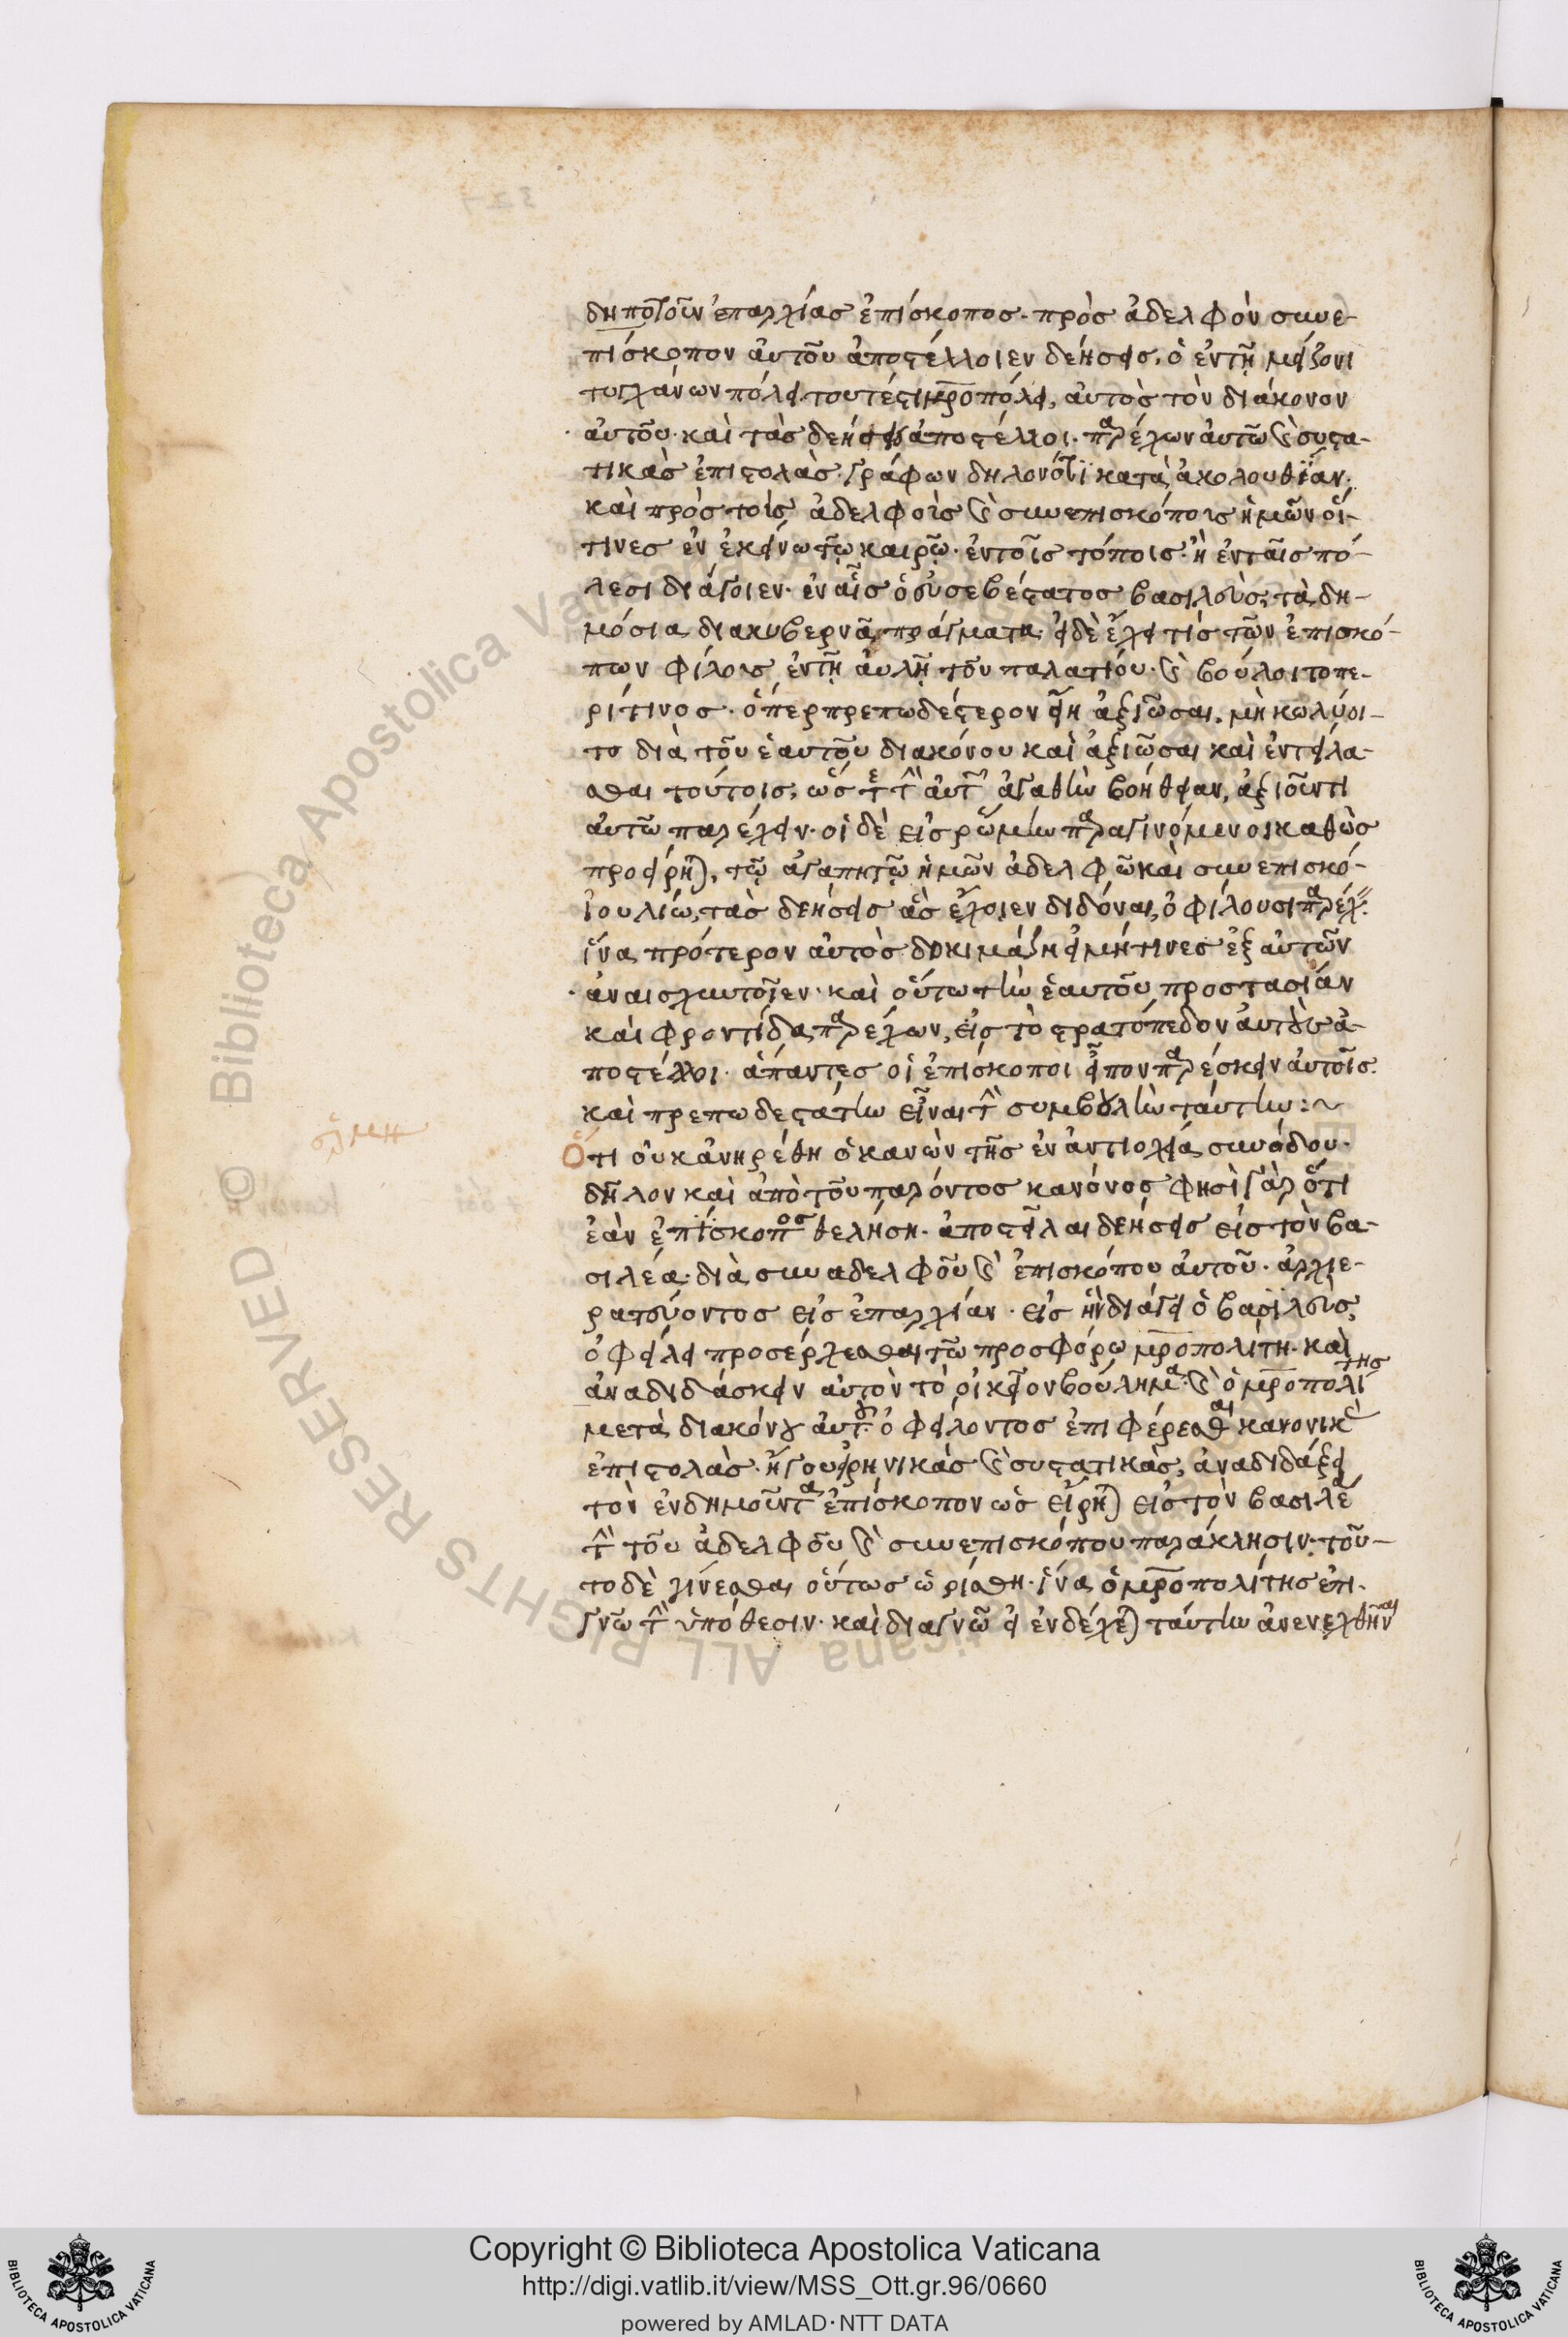 δηποτοῦν ἐπαρχίας ἐπίσκοπος· πρὸς ἀδελφὸν συνε-
πίσκοπον αὐτοῦ ἀποστέλλοιεν δεήσεις, ὁ ἐν τῇ μείζονι
τυγχάνων πόλει τουτέστι μ̅ρ̅οπόλει, αὐτὸς τὸν διάκονον
αὐτοῦ· καὶ τὰς δεήσεις ἀποστέλλοι· παρέχων αὐτῶ καὶ συστα-
τικὰς ἐπιστολὰς· γράφων δηλονότι κατὰ ἀκολουθίαν·
καὶ πρὸς τοὶς ἀδελφοὶς καὶ συνεπισκόποις ἡμῶν οἵ-
τινες ἐν ἐκείνω τῷ καιρῷ· ἐν τοῖς τόποις· ἢ ἐν ταῖς πό-
λεσι διάγοιεν· ἐν αἷς ὁ εὐσεβέστατος βασιλεὺς, τὰ δη-
μόσια διακυβερνᾶ πράγματα· εἰ δὲ ἔχει τίς τῶν ἐπισκό-
πων φίλους ἐν τῇ αὐλῇ τοῦ παλατίου· καὶ βούλοιτο πε-
ρί τινος· ὅπερ πρεπωδέστερον εἴη ἀξιῶσαι, μὴ κωλύοι-
το διὰ τοῦ ἑαυτοῦ διακόνου καὶ ἀξιῶσαι καὶ ἐντείλα-
σθαι τούτοις, ὥστε τὴν αὐτῶν ἀγαθὴν βοήθειαν, ἀξιοῦντι
αὐτῶ παρέχειν· οἱ δὲ εἰς ῥώμην παραγινόμενοι καθὼς
προείρηται, τῷ ἀγαπητῷ ἡμῶν ἀδελφῶ καὶ συνεπισκό-
ἰουλίω, τὰς δεήσεις ἃς ἔχοιεν διδόναι, ὀφίλουσι παρέχειν
ἵνα πρότερον αὐτὸς δοκιμάζη εἰ μή τινες ἐξ αὐτῶν
ἀναισχυντοῖεν· καὶ οὕτω τὴν ἑαυτοῦ προστασίαν
καὶ φροντίδα παρέχων, εἰς τὸ στρατόπεδον αὐτοὺς ἀ-
ποστέλλοι· ἅπαντες οἱ ἐπίσκοποι εἶπον παρέσκειν αὐτοῖς·
καὶ πρεπωδεστάτην εἶναι τὴν συμβουλὴν ταύτην:~
Ὅτι οὐκ ἀνηρέθη ὁ κανὼν τῆς ἐν ἀντιοχεία συνόδου·
δῆλον καὶ ἀπὸ τοῦ παρόντος κανόνος φησὶ γὰρ ὅτι
ἐὰν ἐπίσκοπος θελήση· ἀποστεῖλαι δεήσεις εἰς τὸν βα-
σιλέα· διὰ συναδελφοῦ καὶ ἐπισκόπου αὐτοῦ· ἀρχιε-
ρατεύοντος εἰς ἐπαρχίαν· εἰς ἣν διάγει ὁ βασιλεὺς,
ὀφείλει προσέρχεσθαι τῶ προσφόρω μ̅ρ̅οπολίτη· καὶ
ἀναδιδάσκειν αὐτὸν τὸ οἰκεῖον βούλημα· καὶ ὁ μ̅ρ̅οπολίτης
μετὰ διακόνου αὐτοῦ· ὀφείλοντος ἐπιφέρεσθαι κανονικὰς
ἐπιστολὰς· ἤγουν εἰρηνικὰς καὶ συστατικὰς, ἀναδιδάξει
τὸν ἐνδημοῦντα ἐπίσκοπον ὡς εἴρηται εἰς τὸν βασιλέα
τὴν τοῦ ἀδελφοῦ καὶ συνεπισκόπου παράκλησιν· τοῦ-
το δὲ γίνεσθαι οὕτως ὡρίσθη· ἵνα ὁ μ̅ρ̅οπολίτης ἐπι-
γνῶ τὴν ὑπόθεσιν· καὶ διαγνῶ εἰ ἐνδέχεται ταύτην ἀνενεχθῆναι